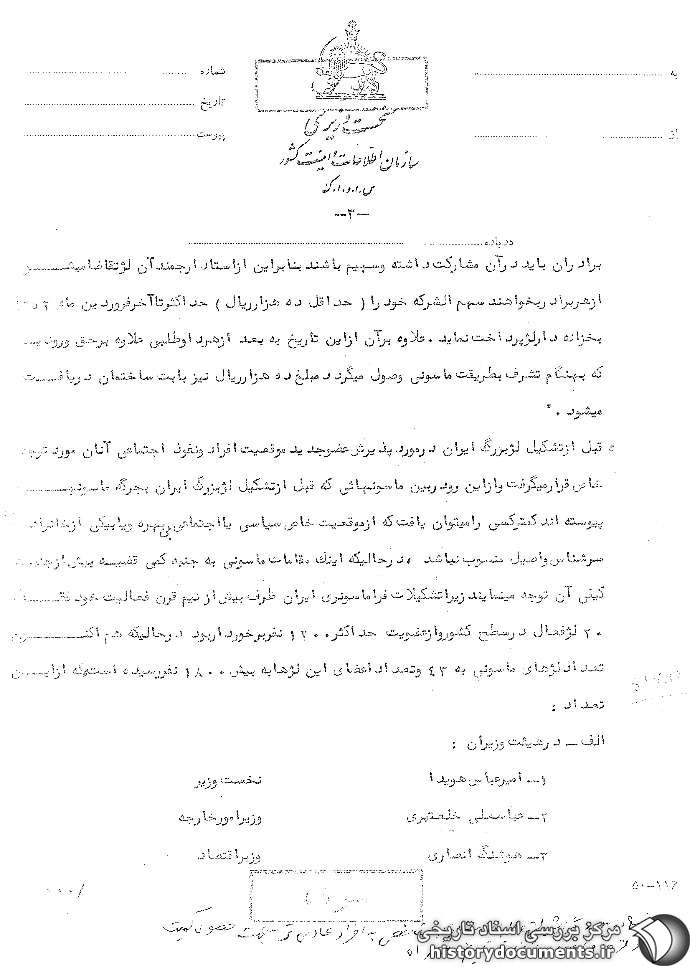 به
شماره
تاریخ
از
پیوست
نخست وزیری
سازمان اطلاعات و امنیت کشور
س.ا.و.ا.ک
-۳-
درباره
برادران باید درآن مشارکت داشته وسهیم باشند بنابراین ازاستاد ارجمند آن لژتقاضا میشود
ازهربرادربخواهند سهم الشرکه خود را ( حداقل ده هزارریال ) حداکثرتاآخرفروردین ماه
بخزانه دارلژپرداخت نماید . علاوه برآن ازاین تاریخ به بعد ازهرداوطلبی علاوه برحق ورودیه
که بهنگام تشرف بطریقت ماسونی وصول میگردد مبلغ ده هزارریال نیز بابت ساختمان دریافت
میشود . "
قبل ازتشکیل لژبزرگ ایران درمورد پذیرش عضوجدید موقعیت افراد ونفوذ اجتماعی آنان مورد توجه
خاص قرارمیگرفت وازاین رودربین ماسونهائی که قبل ازتشکیل لژبزرگ ایران بجرگه ماسونها
پیوسته اند کمترکسی رامیتوان یافت که ازموقعیت خاص سیاسی یااجتماعی بی بهره ویابیکی ازخانواده
سرشناس واصیل منسوب نباشد ، درحالیکه اینک مقامات ماسونی به جنبه کمی قضیه بیش ازجنبه
کیفی آن توجه مینمایند زیراتشکیلات فراماسونری ایران ظرف بیش از نیم قرن فعالیت خود
۲۰ لژفعال درسطح کشوروازعضویت حداکثر ۱۲۰۰ نفربرخورداربود درحالیکه هم اکنون
تعداد لژهای ماسونی به ۴۳ وتعداد اعضای این لژهابه بیش ۱۸۰۰ نفررسیده است که ازاین
تعداد :
الف - درهیئت وزیران :
۱- امیرعباس هویدا نخست وزیر
۲- عباسعلی خلعتبری وزیرامورخارجه
۳- هوشنگ انصاری وزیراقتصاد
۵۰-۱۱۶
سری
مرکز بررسی اسناد تاریخی
historydocuments.ir